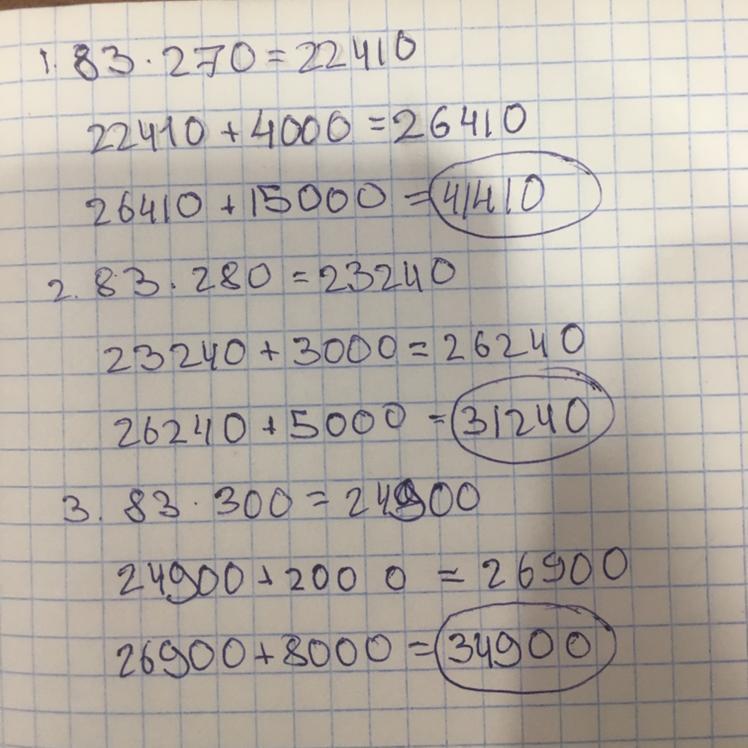 1. 83 · 270 = 22410
22410 + 4000 = 26410
26410 + 15000 = 41410
2. 83 · 280 = 23240
23240 + 3000 = 26240
26240 + 5000 = 31240
3. 83 · 300 = 24900
24900 + 2000 = 26900
26900 + 8000 = 34900